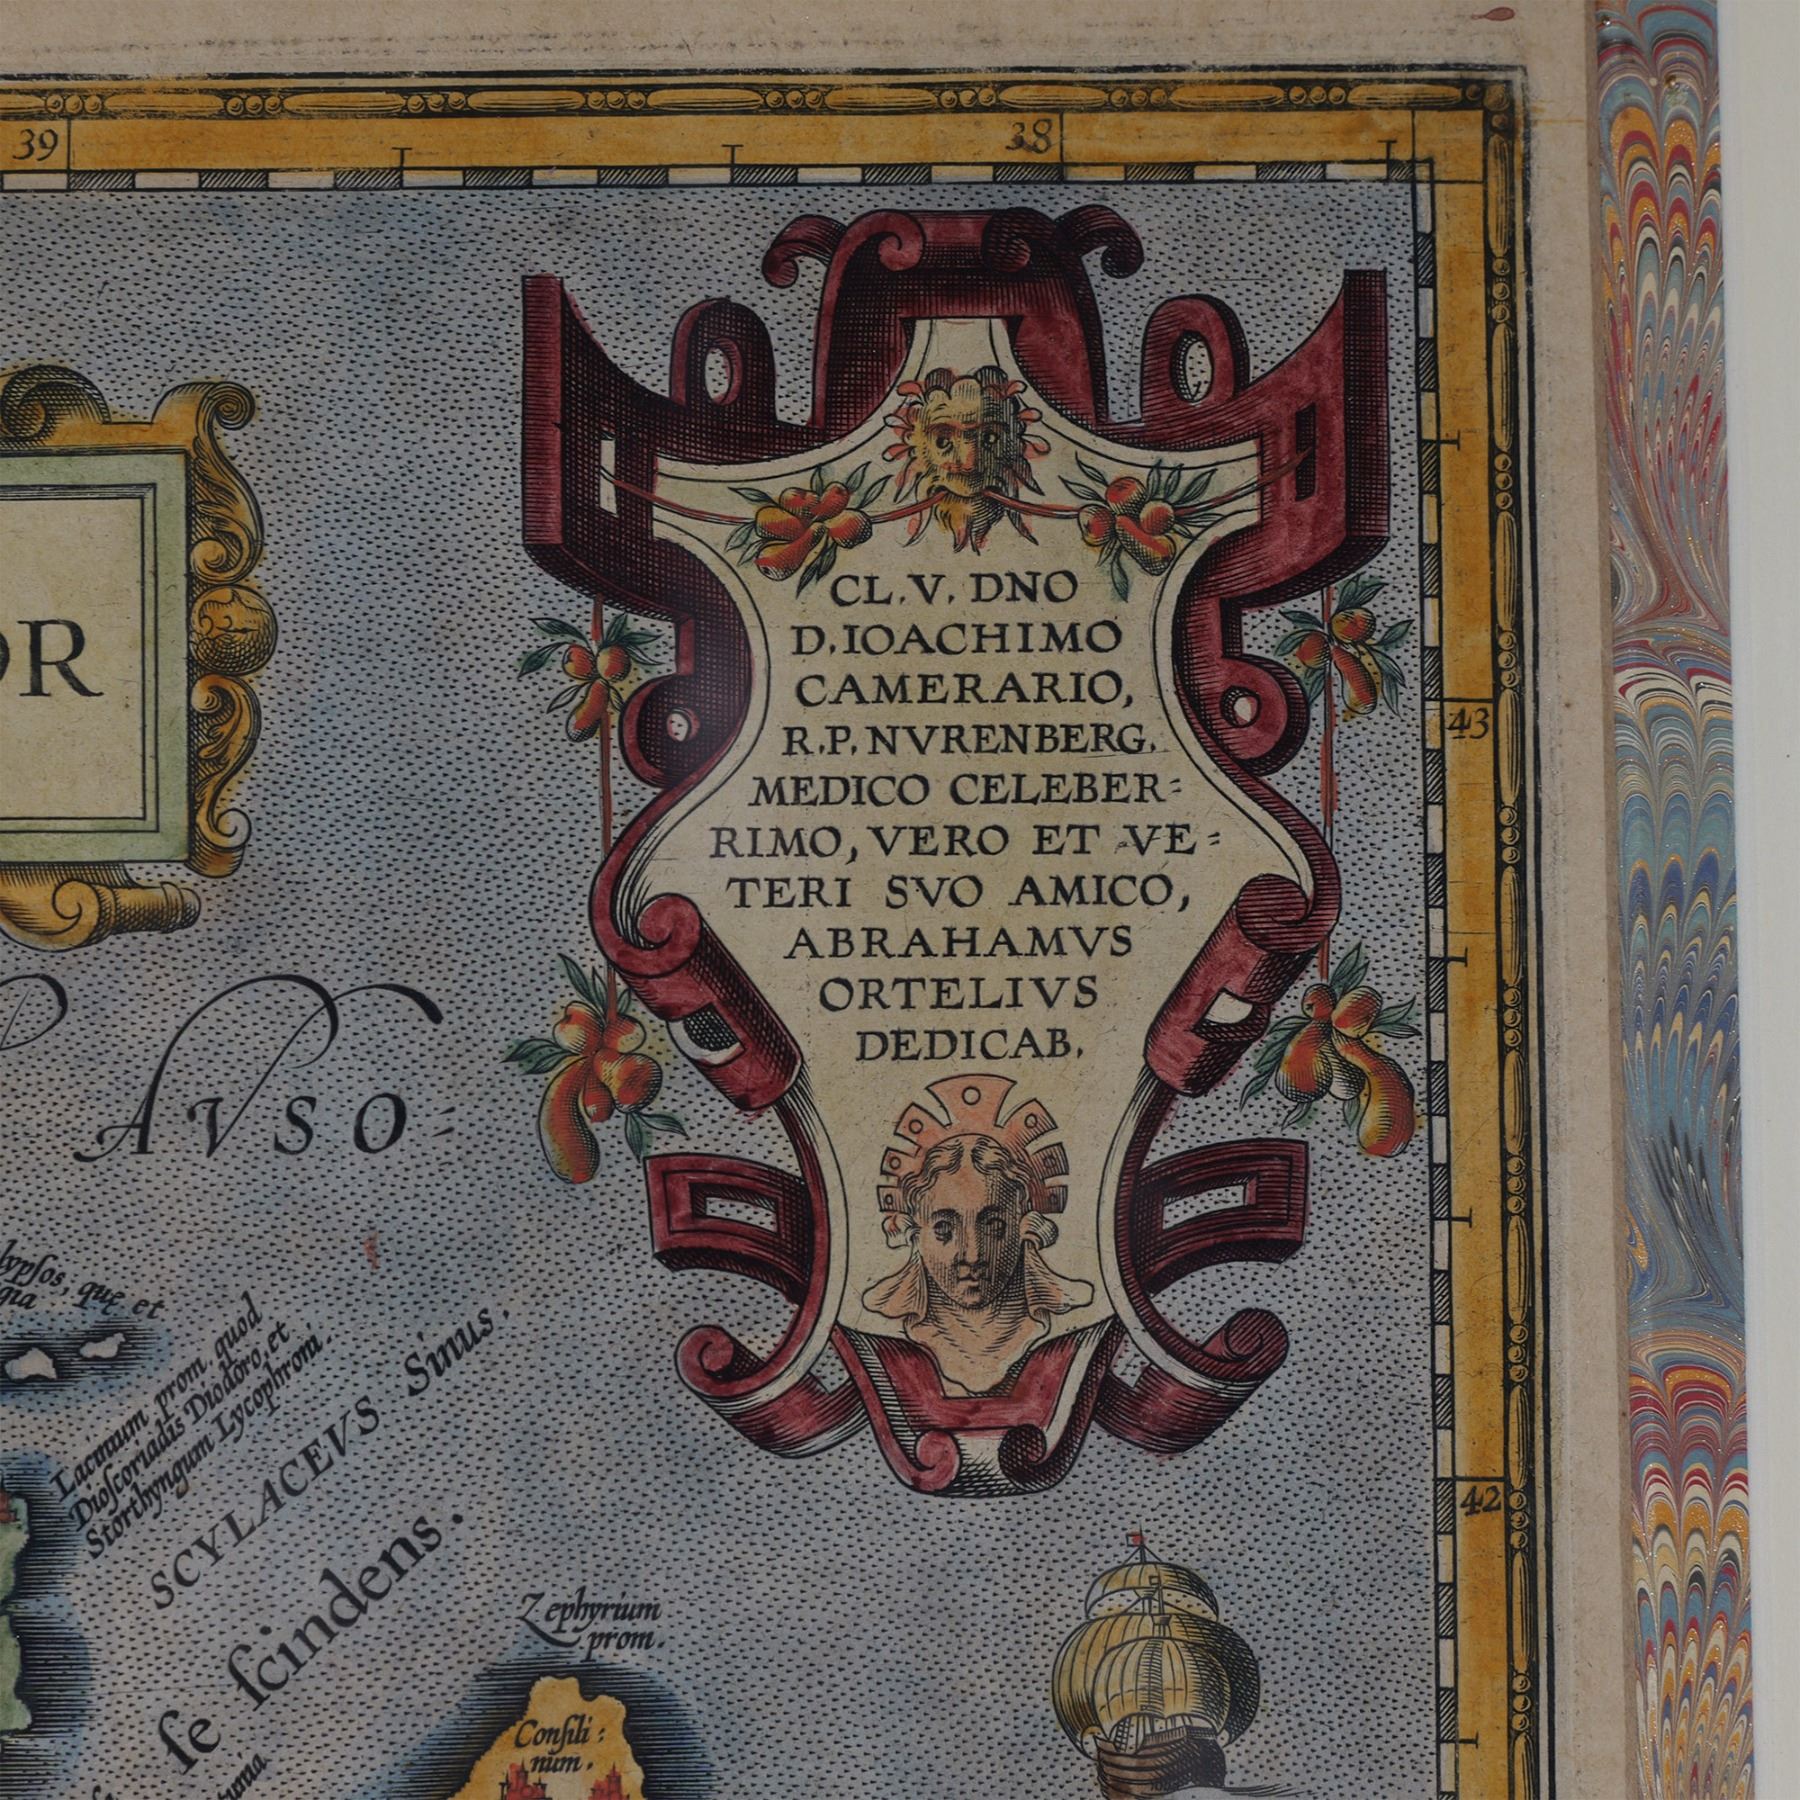 39
38
CL.V. DNO
D. IOACHIMO
CAMERARIO,
R.P. NVRENBERG.
MEDICO CELEBER=
RIMO, VERO ET VE=
TERI SVO AMICO,
ABRAHAMVS
ORTELIVS
DEDICAB.
OR
43
AVSO=
que et
Lacinium prom. quod
Dioſcoriadis Diodoro, et
Storthyngum Lycophrom.
SCYLACEVS Sinus.
ſe ſcindens.
42
Zephyrium
prom.
Conſili:
num.